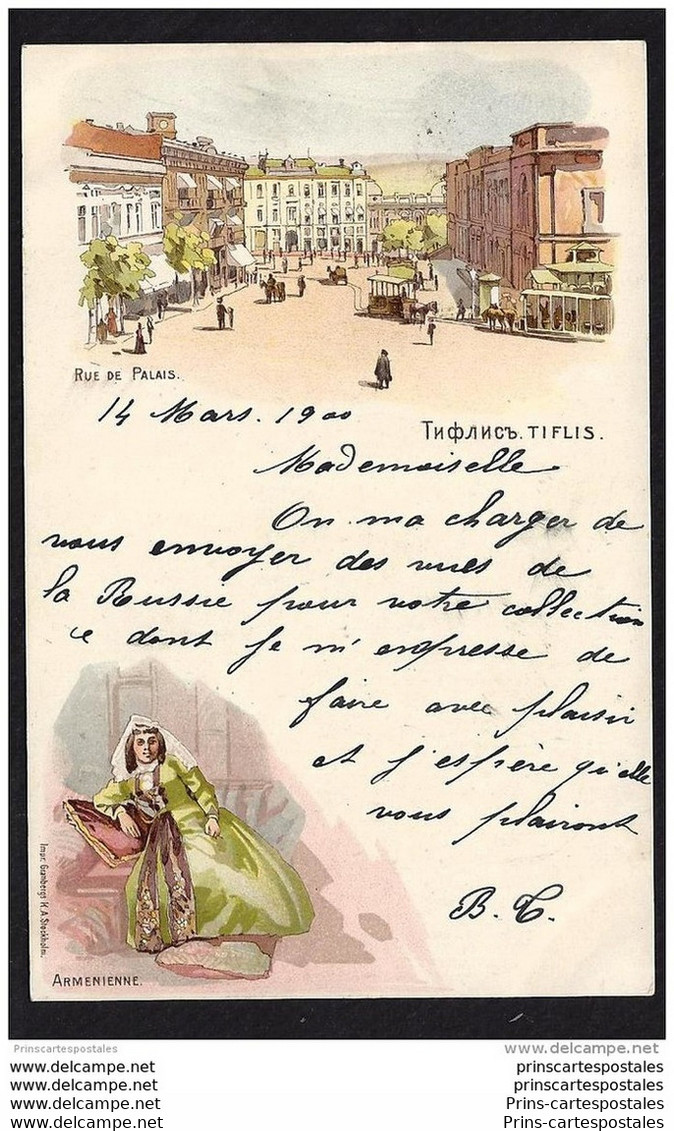 RUE DE PALAIS.
14 Mars. 1900
Тифлисъ. TIFLIS.
Mademoiselle
On ma charger de
vous envoyer des vues de
la Russie pour votre collection
ce dont je m'empresse de
faire avec plaisir
et j'espère qu'elle
vous plairont
B. C.
Impr. Granbergs K.A. Stockholm.
ARMENIENNE.
Prinscartespostales
www.delcampe.net
www.delcampe.net
prinscartespostales
www.delcampe.net
prinscartespostales
www.delcampe.net
Prins-cartespostales
www.delcampe.net
Prins-cartespostales